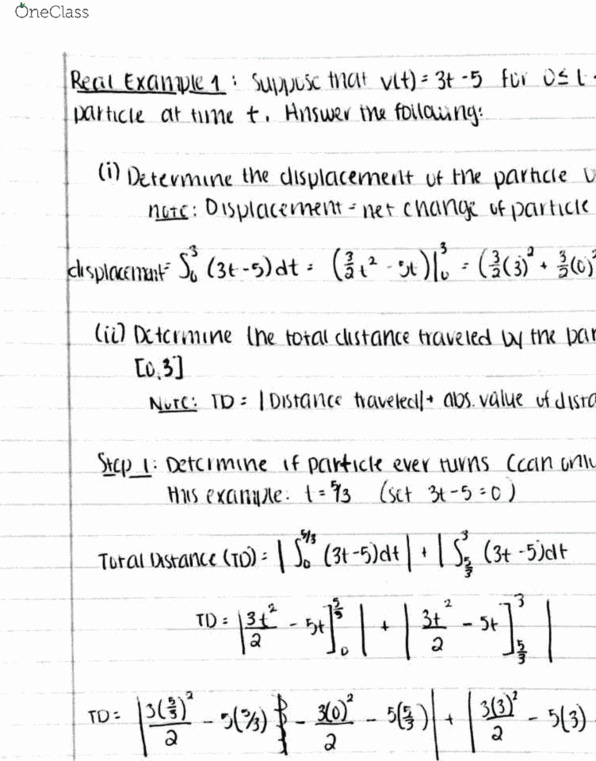 OneClass
Real Example 1 : Suppose that v(t) = 3t - 5 for 0 ≤ t
particle at time t. Answer the following:
(i) Determine the displacement of the particle
note: Displacement = net change of particle
displacement = ∫₀³ (3t-5)dt = (3/2 t² - 5t)|₀³ = (3/2(3)² + 3/2(0)²
(ii) Determine the total distance traveled by the par
[0,3]
Note: TD = |Distance traveled| + abs. value of dista
Step 1: Determine if particle ever turns (can only
this example: t = 5/3 (set 3t-5=0)
Total Distance (TD) = |∫₀^5/3 (3t-5)dt| + |∫_5/3^3 (3t-5)dt
TD = |3t²/2 - 5t]₀^5/3| + |3t²/2 - 5t]_5/3^3|
TD = |3(5/3)²/2 - 5(5/3) - 3(0)²/2 - 5(5/3)| + |3(3)²/2 - 5(3)